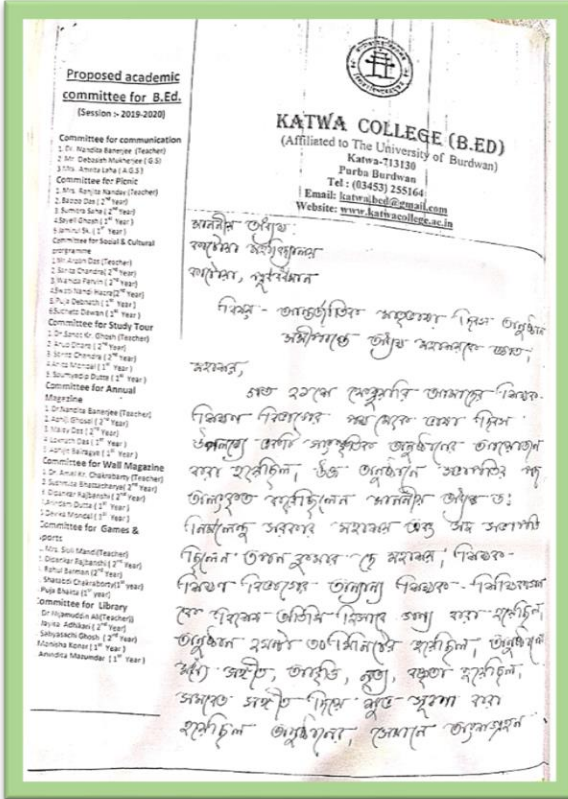 Proposed academic
committee for B.Ed.
(Session :- 2019-2020)
Committee for communication
1. Dr. Nandita Banerjee (Teacher)
2. Mr. Debasish Mukherjee (G.S)
3. Mrs. Amrita Laha (A.G.S)
Committee for Picnic
1. Mrs. Ranjita Nandav (Teacher)
2. Bappa Das (2nd Year)
3. Sumitra Saha (2nd Year)
4. Sayeli Ghosh (1st Year)
5. Jamirul Sk. (1st Year)
Committee for Social & Cultural
programme
1. Mr Arpan Das (Teacher)
2. Sarita Chandra (2nd Year)
3. Wahida Parvin (2nd Year)
4. Swati Nandi Hazra (2nd Year)
5. Puja Debnath (1st Year)
6. Sucheta Dewan (1st Year)
Committee for Study Tour
1. Dr. Sanat Kr. Ghosh (Teacher)
2. Arup Dhara (2nd Year)
3. Sarita Chandra (2nd Year)
4. Anita Mondal (1st Year)
5. Soumyadip Dutta (1st Year)
Committee for Annual
Magazine
1. Dr. Nandita Banerjee (Teacher)
2. Abhij Ghosal (2nd Year)
3. Malay Das (2nd Year)
4. Das (1st Year)
5. Abhijit Bairagya (1st Year)
Committee for Wall Magazine
1. Dr. Amal Kr. Chakrabarty (Teacher)
2. Susmita Bhattacharya (2nd Year)
3. Dipankar Rajbanshi (2nd Year)
4. Arindam Dutta (1st Year)
5. Mondal (1st Year)
Committee for Games &
Sports
Mrs. Siuli Mandi (Teacher)
Dipankar Rajbanshi (2nd Year)
Rahul Barman (2nd Year)
Shatabdi Chakraborty (1st year)
Puja Bhakta (1st year)
Committee for Library
Dr Nijamuddin Ali (Teacher)
Jayna Adhikari (2nd Year)
Sabyasachi Ghosh (2nd Year)
Monisha Konar (1st Year)
Anindita Mazumdar (1st Year)
KATWA COLLEGE (B.ED)
(Affiliated to The University of Burdwan)
Katwa-713130
Purba Burdwan
Tel : (03453) 255164
Email: katwa.bed@gmail.com
Website: www.katwacollege.ac.in
মাননীয় অধ্যক্ষ
কাটোয়া মহাবিদ্যালয়
কাটোয়া, পূর্ববর্ধমান
বিষয় - আন্তর্জাতিক মাতৃভাষা দিবস অনুষ্ঠান
অধ্যক্ষ মহাশয়কে জ্ঞাত,
মহাশয়,
গত ২১শে ফেব্রুয়ারি আমাদের শিক্ষক-
শিক্ষণ বিভাগের পক্ষ থেকে ভাষা দিবস
উপলক্ষ্যে একটি সাংস্কৃতিক অনুষ্ঠানের আয়োজন
করা হয়েছিল, উক্ত অনুষ্ঠানে সভাপতির পদ
অলংকৃত করেছিলেন মাননীয় অধ্যক্ষ ডঃ
নির্মলেন্দু সরকার মহাশয় এবং সহ সভাপতি
ছিলেন তপন কুমার দে মহাশয়, শিক্ষক-
শিক্ষণ বিভাগের অন্যান্য শিক্ষক - শিক্ষিকাগণ
কে বিশেষ অতিথি হিসাবে গণ্য করা হয়েছিল,
অনুষ্ঠান ২ঘন্টা ৩০মিনিটের হয়েছিল, অনুষ্ঠানে
মধ্যে সঙ্গীত, আবৃত্তি, নৃত্য, বক্তৃতা হয়েছিল,
সমবেত সঙ্গীত দিয়ে শুভ সূচনা করা
হয়েছিল অনুষ্ঠানের, সেখানে অংশগ্রহণ